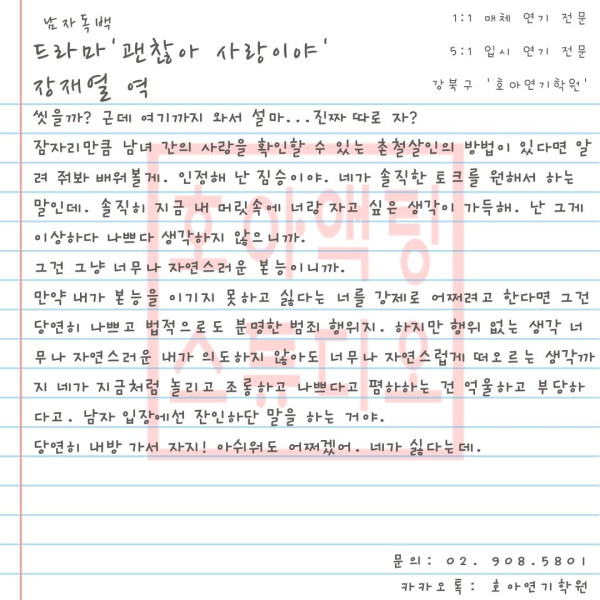 남자독백
1:1 매체 연기 전문
드라마'괜찮아 사랑이야'
5:1 입시 연기 전문
장재열 역
강북구 '호아연기학원'
씻을까? 근데 여기까지 와서 설마...진짜 따로 자?
잠자리만큼 남녀 간의 사랑을 확인할 수 있는 촌철살인의 방법이 있다면 알
려 줘봐 배워볼게. 인정해 난 짐승이야. 네가 솔직한 토크를 원해서 하는
말인데. 솔직히 지금 내 머릿속에 너랑 자고 싶은 생각이 가득해. 난 그게
이상하다 나쁘다 생각하지 않으니까.
그건 그냥 너무나 자연스러운 본능이니까.
만약 내가 본능을 이기지 못하고 싫다는 너를 강제로 어쩌려고 한다면 그건
당연히 나쁘고 법적으로도 분명한 범죄 행위지. 하지만 행위 없는 생각 너
무나 자연스러운 내가 의도하지 않아도 너무나 자연스럽게 떠오르는 생각까
지 네가 지금처럼 놀리고 조롱하고 나쁘다고 폄하하는 건 억울하고 부당하
다고. 남자 입장에선 잔인하단 말을 하는 거야.
당연히 내방 가서 자지! 아쉬워도 어쩌겠어. 네가 싫다는데.
호아액팅
스튜디오
문의: 02. 908.5801
카카오톡: 호아연기학원